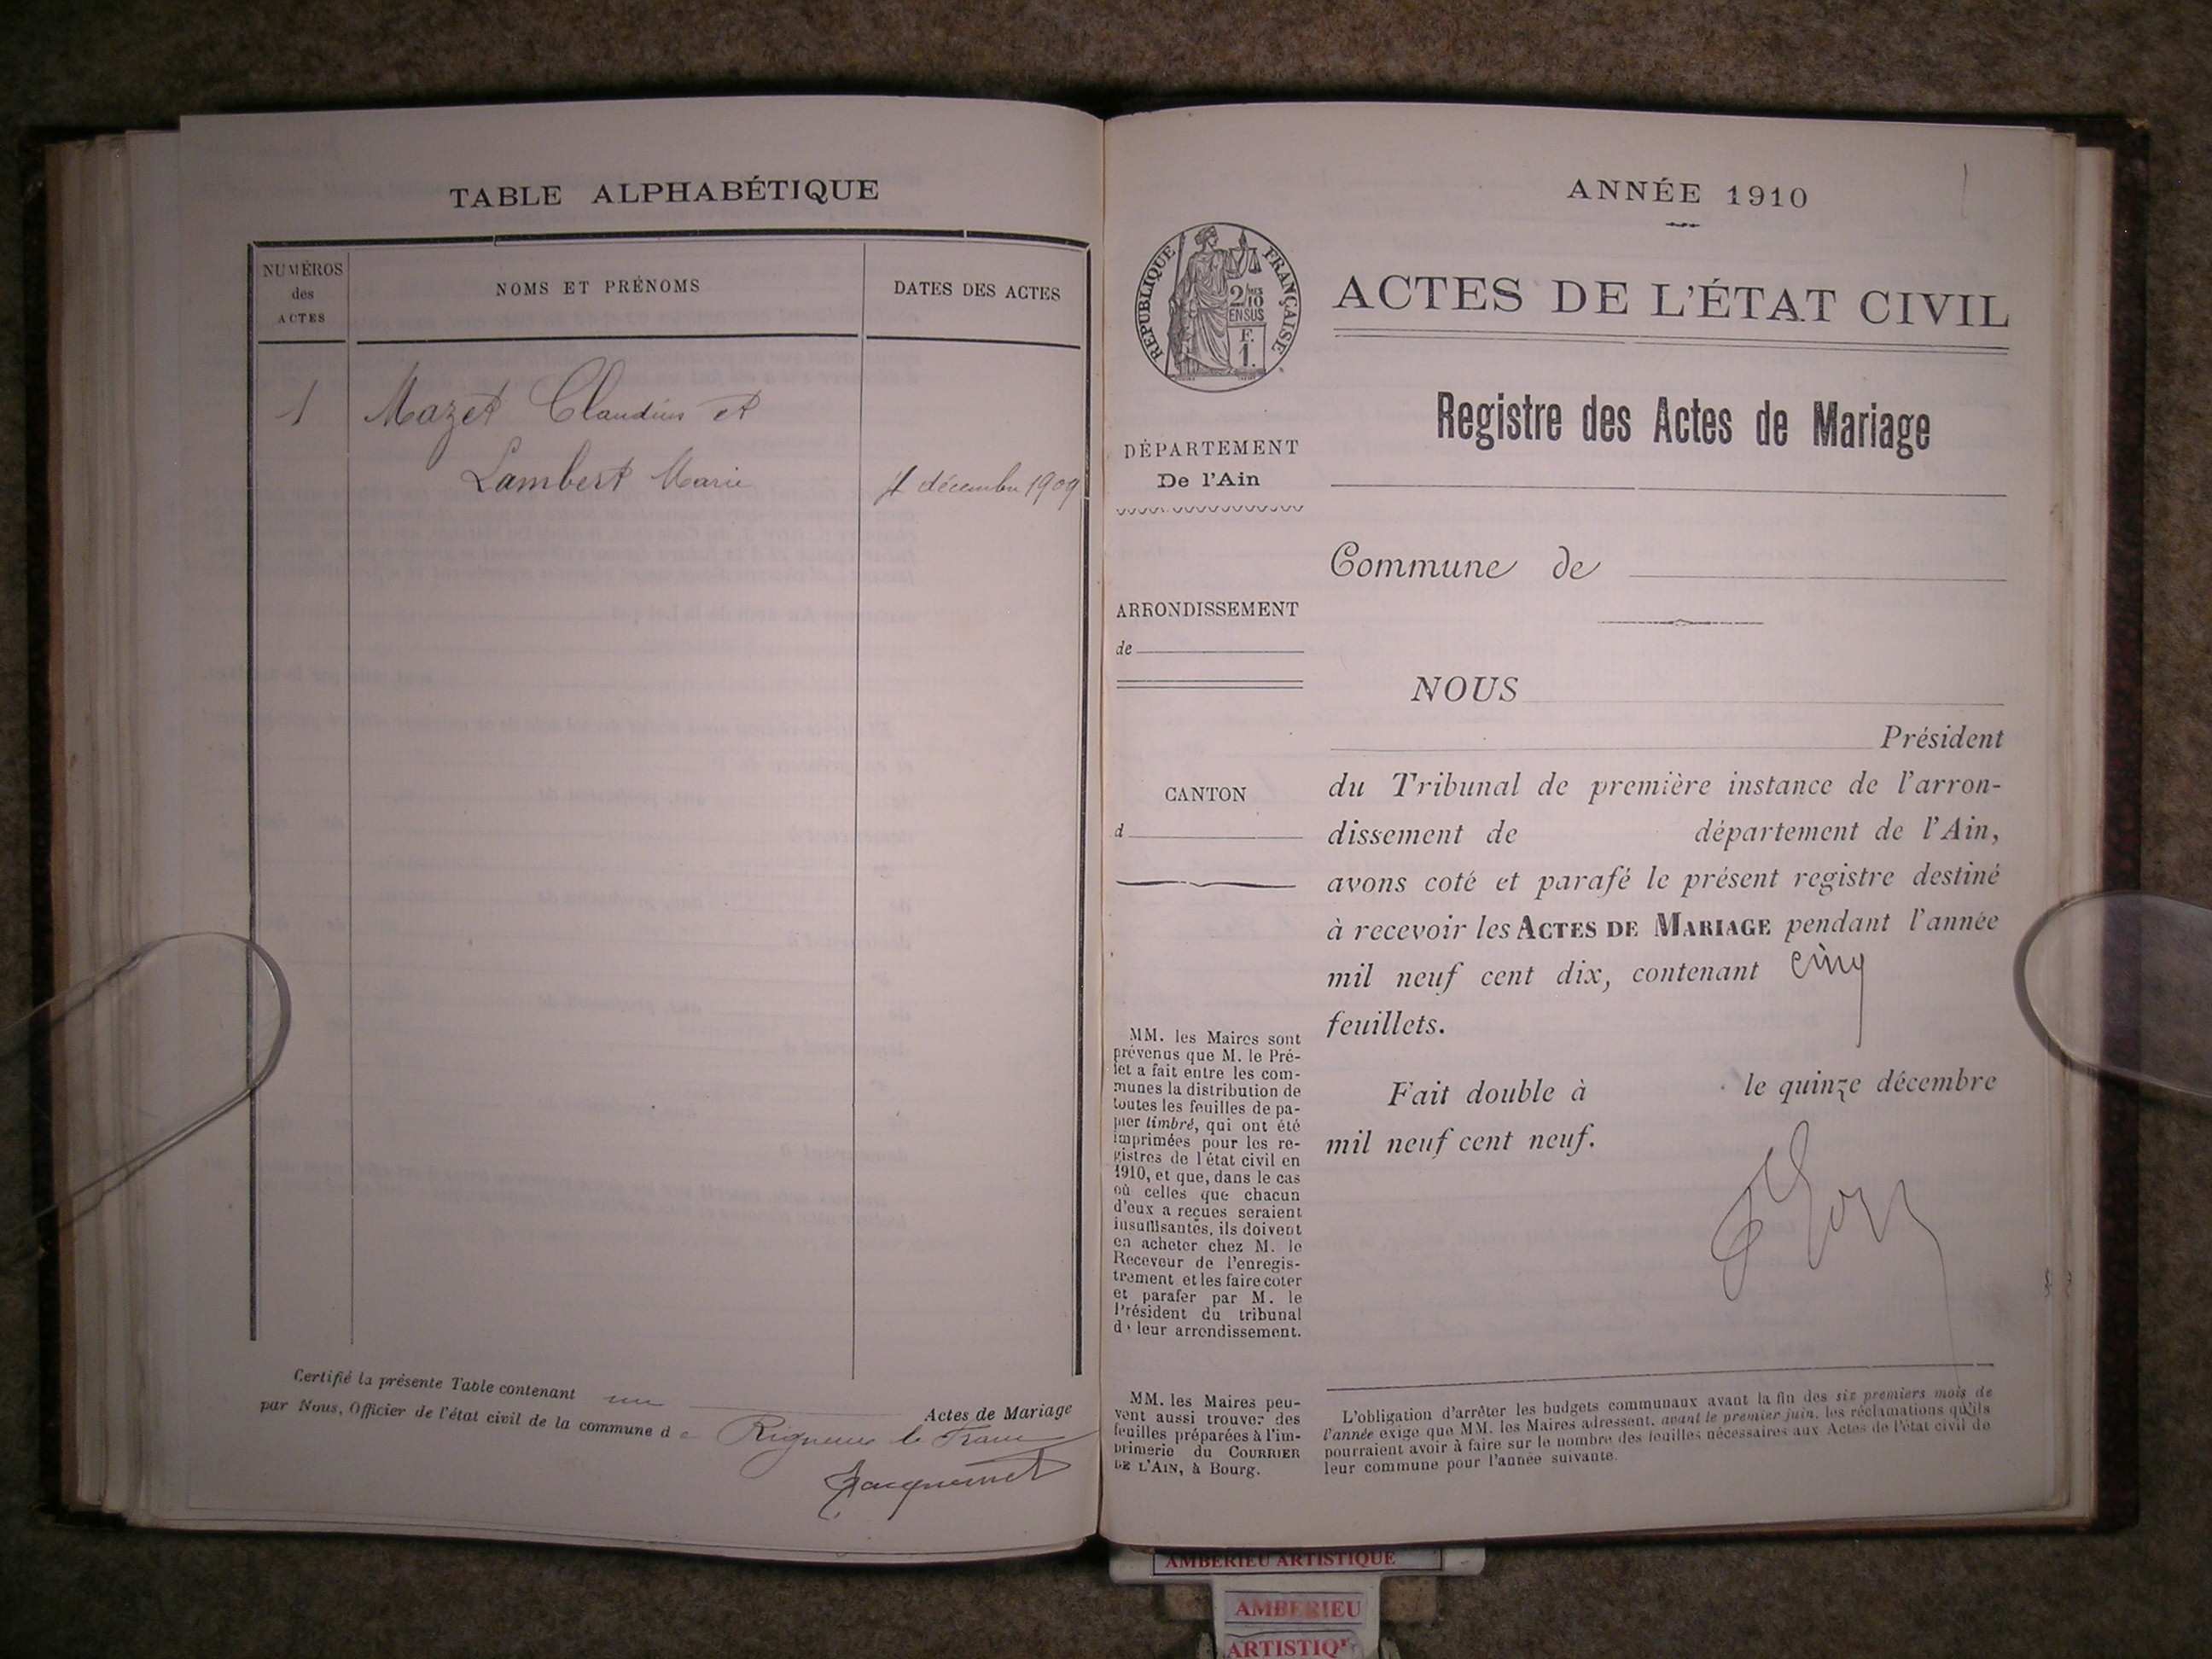 TABLE ALPHABÉTIQUE
NUMÉROS
des
ACTES
NOMS ET PRÉNOMS
DATES DES ACTES
1
Mazet Claudius et
Lambert Marie
4 décembre 1909
Certifié la présente Table contenant un Actes de Mariage
par Nous, Officier de l'état civil de la commune de Rigneux le Franc
Jacquemet
ANNÉE 1910
RÉPUBLIQUE FRANÇAISE
2/10
EN SUS
F.
1.
ACTES DE L'ÉTAT CIVIL
Registre des Actes de Mariage
DÉPARTEMENT
De l'Ain
Commune de
ARRONDISSEMENT
de
CANTON
d
NOUS
Président
du Tribunal de première instance de l'arron-
dissement de département de l'Ain,
avons coté et parafé le présent registre destiné
à recevoir les ACTES DE MARIAGE pendant l'année
mil neuf cent dix, contenant cinq
feuillets.
Fait double à le quinze décembre
mil neuf cent neuf.
MM. les Maires sont
prévenus que M. le Pré-
fet a fait entre les com-
munes la distribution de
toutes les feuilles de pa-
pier timbré, qui ont été
imprimées pour les re-
gistres de l'état civil en
1910, et que, dans le cas
où celles que chacun
d'eux a reçues seraient
insuffisantes, ils doivent
en acheter chez M. le
Receveur de l'enregis-
trement et les faire coter
et parafer par M. le
Président du tribunal
de leur arrondissement.
MM. les Maires peu-
vent aussi trouver des
feuilles préparées à l'im-
primerie du COURRIER
DE L'AIN, à Bourg.
L'obligation d'arrêter les budgets communaux avant la fin des six premiers mois de
l'année exige que MM. les Maires adressent, avant le premier juin, les réclamations qu'ils
pourraient avoir à faire sur le nombre des feuilles nécessaires aux Actes de l'état civil de
leur commune pour l'année suivante.
AMBERIEU ARTISTIQUE
AMBERIEU
ARTISTIQ